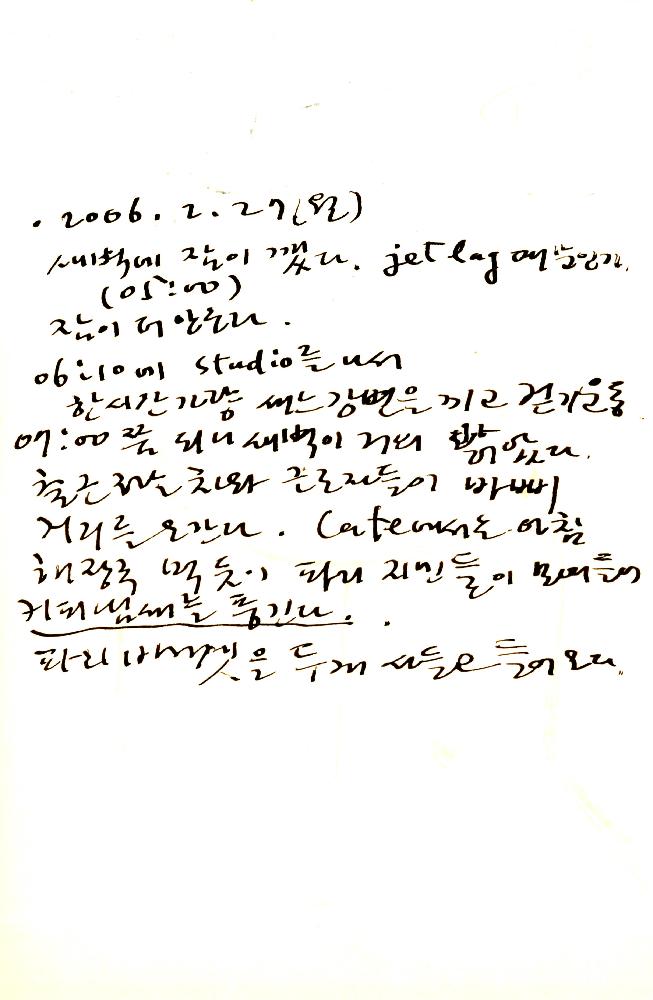 . 2006. 2. 27(월)
새벽에 잠이 깼다. jet lag 때문인가.
(05:00)
잠이 더 안온다.
06:10에 studio를 나서
한시간가량 세느강변을 끼고 걷기운동
07:00 쯤 되니 새벽이 거의 밝았다.
출근 차와 근로자들이 바삐
거리를 오간다. Cafe에서는 아침
해장국 먹듯이 파리 지민들이 모여들어
커피냄새를 풍긴다.
파리 바게뜨을 두개 사들고 들어오다.